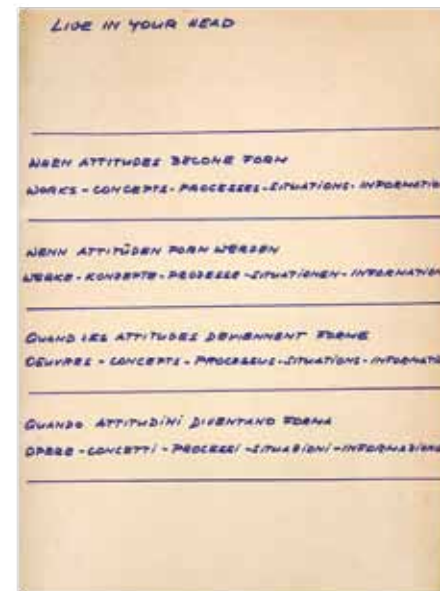 LIVE IN YOUR HEAD
WHEN ATTITUDES BECOME FORM
WORKS - CONCEPTS - PROCESSES - SITUATIONS - INFORMATIO
WENN ATTITÜDEN FORM WERDEN
WERKE - KONZEPTE - PROZESSE - SITUATIONEN - INFORMATION
QUAND LES ATTITUDES DEVIENNENT FORME
OEUVRES - CONCEPTS - PROCESSUS - SITUATIONS - INFORMATIO
QUANDO ATTITUDINI DIVENTANO FORMA
OPERE - CONCETTI - PROCESSI - SITUAZIONI - INFORMAZIONE